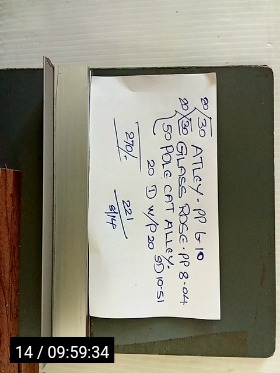 20/30 ATLEY. PP 6-10
20/30 GLASS ROSE. PP 8-04
50 POLE CAT ALLEY.
20 D W/P 20 SD 10-51
270/-
221
14 / 09:59:34